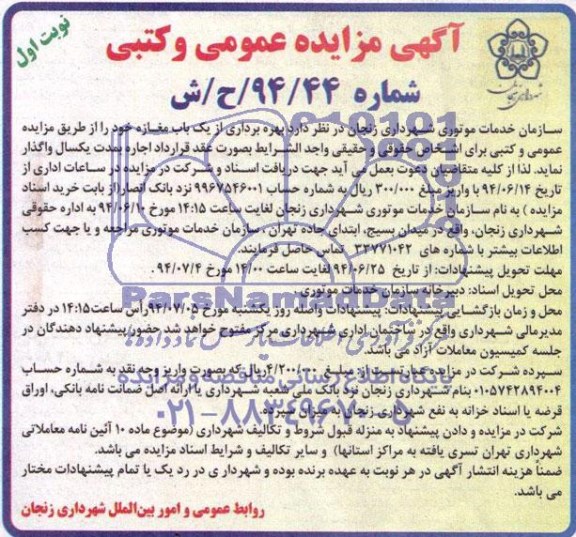 نوبت اول
آگهی مزایده عمومی و کتبی
شهرداری زنجان
شماره ۹۴/۴۴/ح/ش
سازمان خدمات موتوری شهرداری زنجان در نظر دارد بهره برداری از یک باب مغازه خود را از طریق مزایده
عمومی و کتبی برای اشخاص حقوقی و حقیقی واجد الشرایط بصورت عقد قرارداد اجاره بمدت یکسال واگذار
نماید. لذا از کلیه متقاضیان دعوت بعمل می آید جهت دریافت اسناد و شرکت در مزایده در ساعات اداری از
تاریخ ۹۴/۰۶/۱۴ با واریز مبلغ ۳۰۰/۰۰۰ ریال به شماره حساب ۹۹۶۷۵۴۶۰۰۱ نزد بانک انصار(از بابت خرید اسناد
مزایده ) به نام سازمان خدمات موتوری شهرداری زنجان لغایت ساعت ۱۴:۱۵ مورخ ۹۴/۰۶/۱۰ به اداره حقوقی
شهرداری زنجان، واقع در میدان بسیج، ابتدای جاده تهران ، سازمان خدمات موتوری مراجعه و یا جهت کسب
اطلاعات بیشتر با شماره های ۳۳۷۷۱۰۴۲ تماس حاصل فرمایند.
مهلت تحویل پیشنهادات: از تاریخ ۹۴/۰۶/۲۵ لغایت ساعت ۱۴/۰۰ مورخ ۹۴/۰۷/۴.
محل تحویل اسناد: دبیرخانه سازمان خدمات موتوری.
محل و زمان بازگشایی پیشنهادات: پیشنهادات واصله روز یکشنبه مورخ ۹۴/۰۷/۰۵ رأس ساعت ۱۴:۱۵ در دفتر
مدیرمالی شهرداری واقع در ساختمان اداری شهرداری مرکز مفتوح خواهد شد. حضور پیشنهاد دهندگان در
جلسه کمیسیون معاملات آزاد می باشد.
سپرده شرکت در مزایده عبارتست از مبلغ ۴/۲۰۰/۰۰۰ ریال که بصورت واریز وجه نقد به شماره حساب
۰۱۰۵۷۴۲۸۹۴۰۰۴ بنام شهرداری زنجان نزد بانک ملی شعبه شهرداری یا ارائه اصل ضمانت نامه بانکی، اوراق
قرضه یا اسناد خزانه به نفع شهرداری زنجان به میزان سپرده.
شرکت در مزایده و دادن پیشنهاد به منزله قبول شروط و تکالیف شهرداری (موضوع ماده ۱۰ آئین نامه معاملاتی
شهرداری تهران تسری یافته به مراکز استانها) و سایر تکالیف و شرایط اسناد مزایده می باشد.
ضمناً هزینه انتشار آگهی در هر نوبت به عهده برنده بوده و شهرداری در رد یک یا تمام پیشنهادات مختار
می باشد.
روابط عمومی و امور بین‌الملل شهرداری زنجان
ParsNamadData
مرکز فرآوری اطلاعات پارس نماد داده ها
پایگاه اطلاع رسانی مناقصه و مزایده
۰۲۱-۸۸۳۴۹۶۷۰